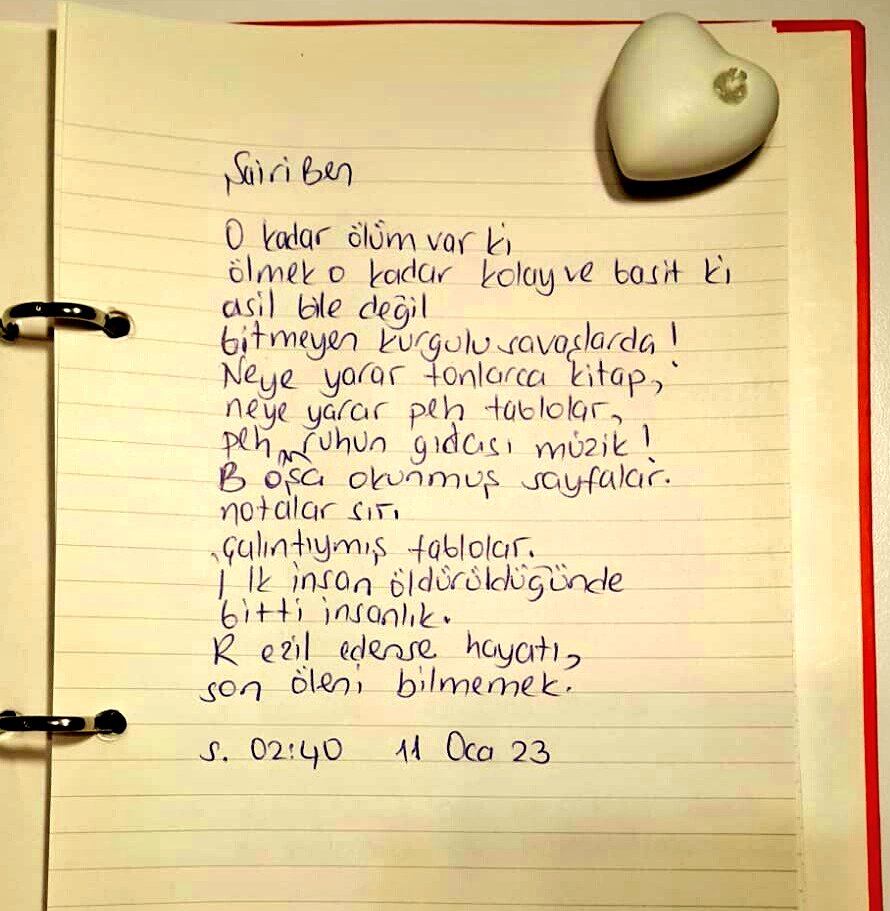 Şairi Ben
O kadar ölüm var ki
ölmek o kadar kolay ve basit ki
asil bile değil
bitmeyen kurgulu savaşlarda!
Neye yarar tonlarca kitap,
neye yarar peh tablolar,
peh, ruhun gıdası müzik!
Boşa okunmuş sayfalar.
notalar sırı
çalıntıymış tablolar.
İlk insan öldürüldüğünde
bitti insanlık.
Rezil edense hayatı,
son öleni bilmemek.
s. 02:40 11 Oca 23